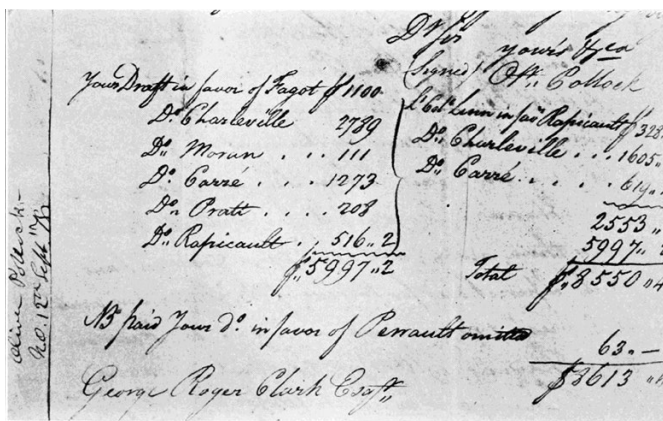 Dr Sir
yours &ca
(Signed) Olr. Pollock
Your Draft in favor of Fagot $ 1100
Do. Charleville 2789
Do. Moran . . . 111
Do. Carré . . . . 1273
Do. Pratt . . . . 208
Do. Rapicault . 516 .. 2
$ 5997 .. 2
Lt Col. Linn in favr Rapicault $ 328
Do. Charleville . . . 1605
Do. Carré . . . . 619
2553 ..
5997 .. 2
Total $ 8550 .. 4
NB paid Your do. in favor of Perrault omitted
63 .. —
$ 8613 ..
George Roger Clark Esqr.
Oliver Pollock —
N.O. 12th Septr